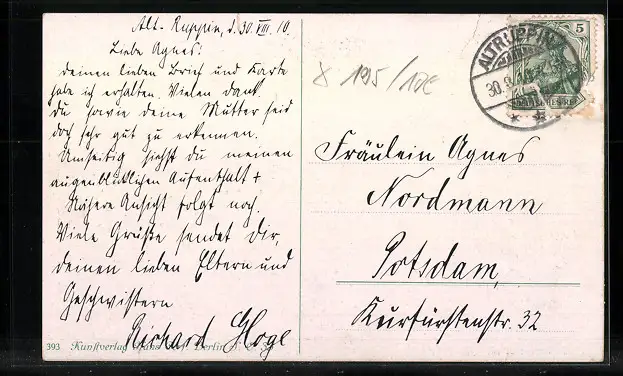 Alt-Ruppin, d. 30. VIII. 10.
Liebe Agnes!
deinen lieben Brief und Karte
habe ich erhalten. Vielen dank.
du sowie deine Mutter seid
doch sehr gut zu erkennen.
Umseitig siehst du meinen
augenblicklichen Aufenthalt +
Nähere Ansicht folgt noch.
Viele Grüße sendet dir,
deinen lieben Eltern und
Geschwistern
Richard
393 Kunstverlag Berlin
195/10€
ALTRUPPIN
30.
5
Fräulein Agnes
Nordmann
Potsdam,
Kurfürstenstr. 32